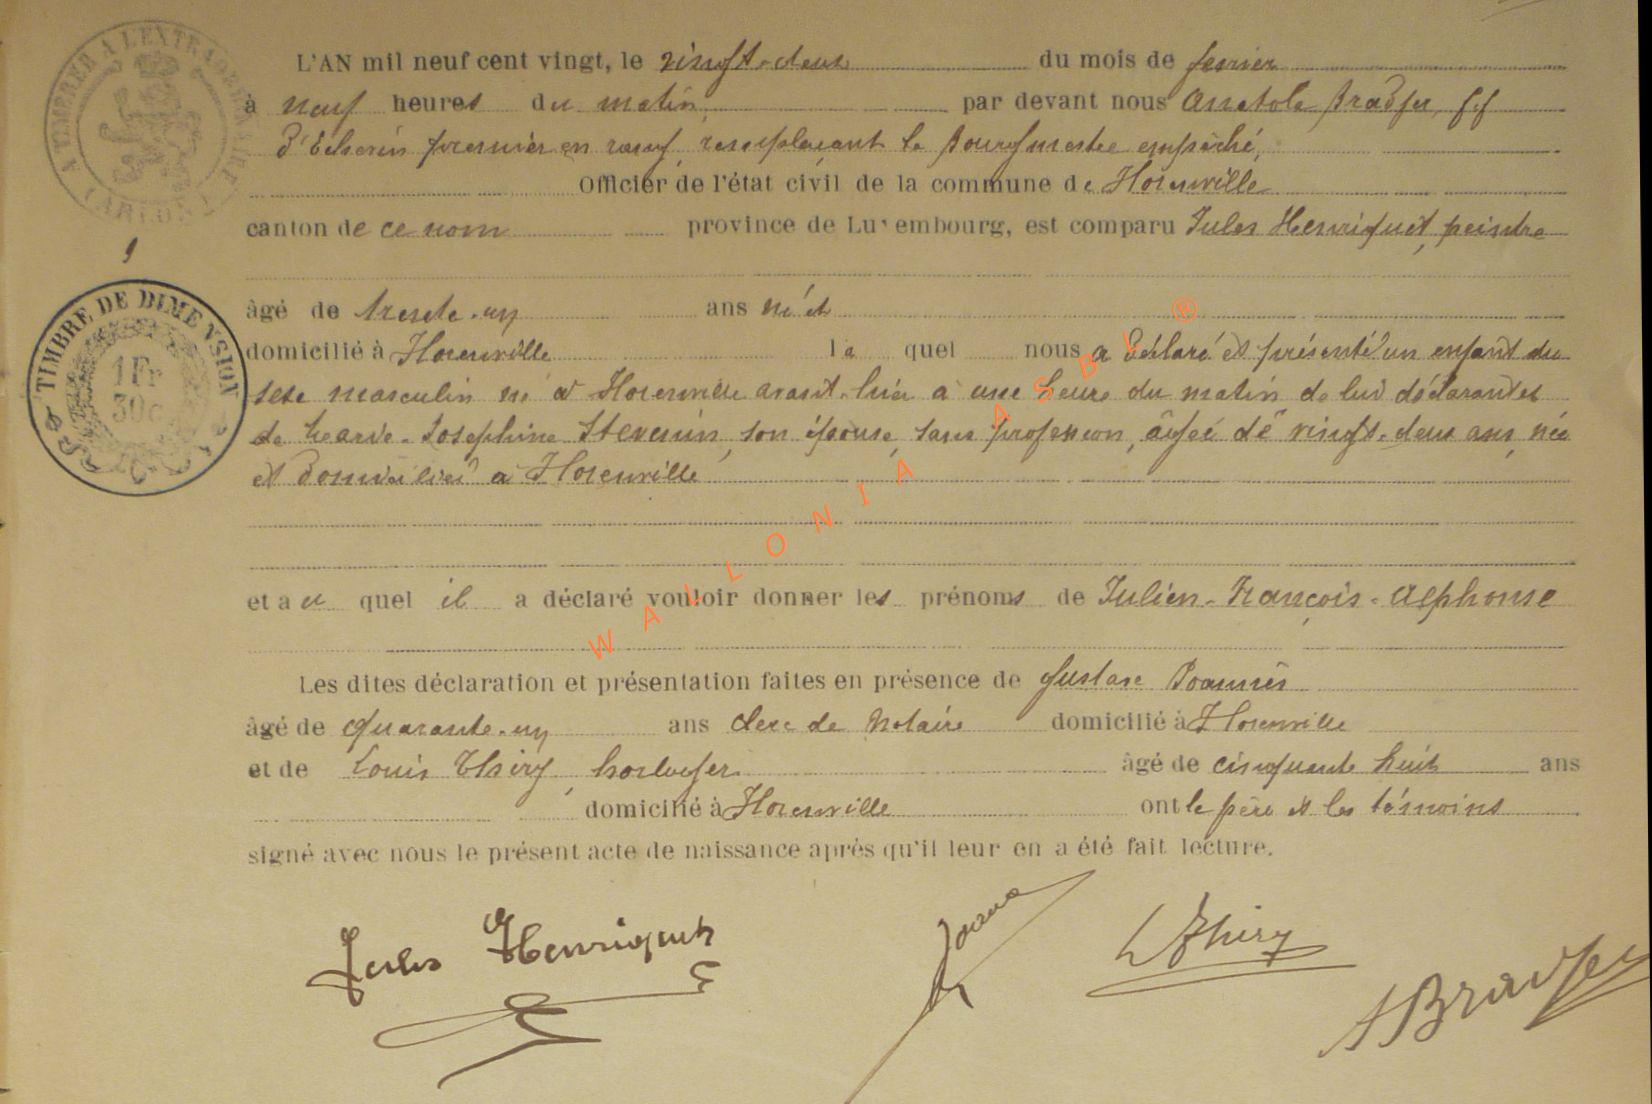 A TIMBRER A L'EXTRAORDINAIRE
(ARLON)
L'AN mil neuf cent vingt, le vingt-deux du mois de fevrier
à neuf heures du matin, par devant nous Anatole Bradfer, ff
d'Echevin premier en rang, remplaçant le Bourgmestre empêché,
Officier de l'état civil de la commune de Florenville
canton de ce nom province de Luxembourg, est comparu Jules Henriquet, peintre
TIMBRE DE DIMENSION
1 Fr
30c
âgé de trente-un ans né et
domicilié à Florenville lequel nous a déclaré et présenté un enfant du
sexe masculin né à Florenville avant-hier à une heure du matin de lui déclarant et
de Marie-Josephine Stevenin, son épouse, sans profession, âgée de vingt-deux ans, née
et domiciliée à Florenville
et au quel il a déclaré vouloir donner les prénoms de Julien-François-Alphonse
Les dites déclaration et présentation faites en présence de Gustave
âgé de quarante-un ans clerc de Notaire domicilié à Florenville
et de Louis Thiry, horloger âgé de cinquante huit ans
domicilié à Florenville ont le père et les témoins
signé avec nous le présent acte de naissance après qu'il leur en a été fait lecture.
Jules Henriquet
L Thiry
A Bradfer
WALLONIA ASBL ®